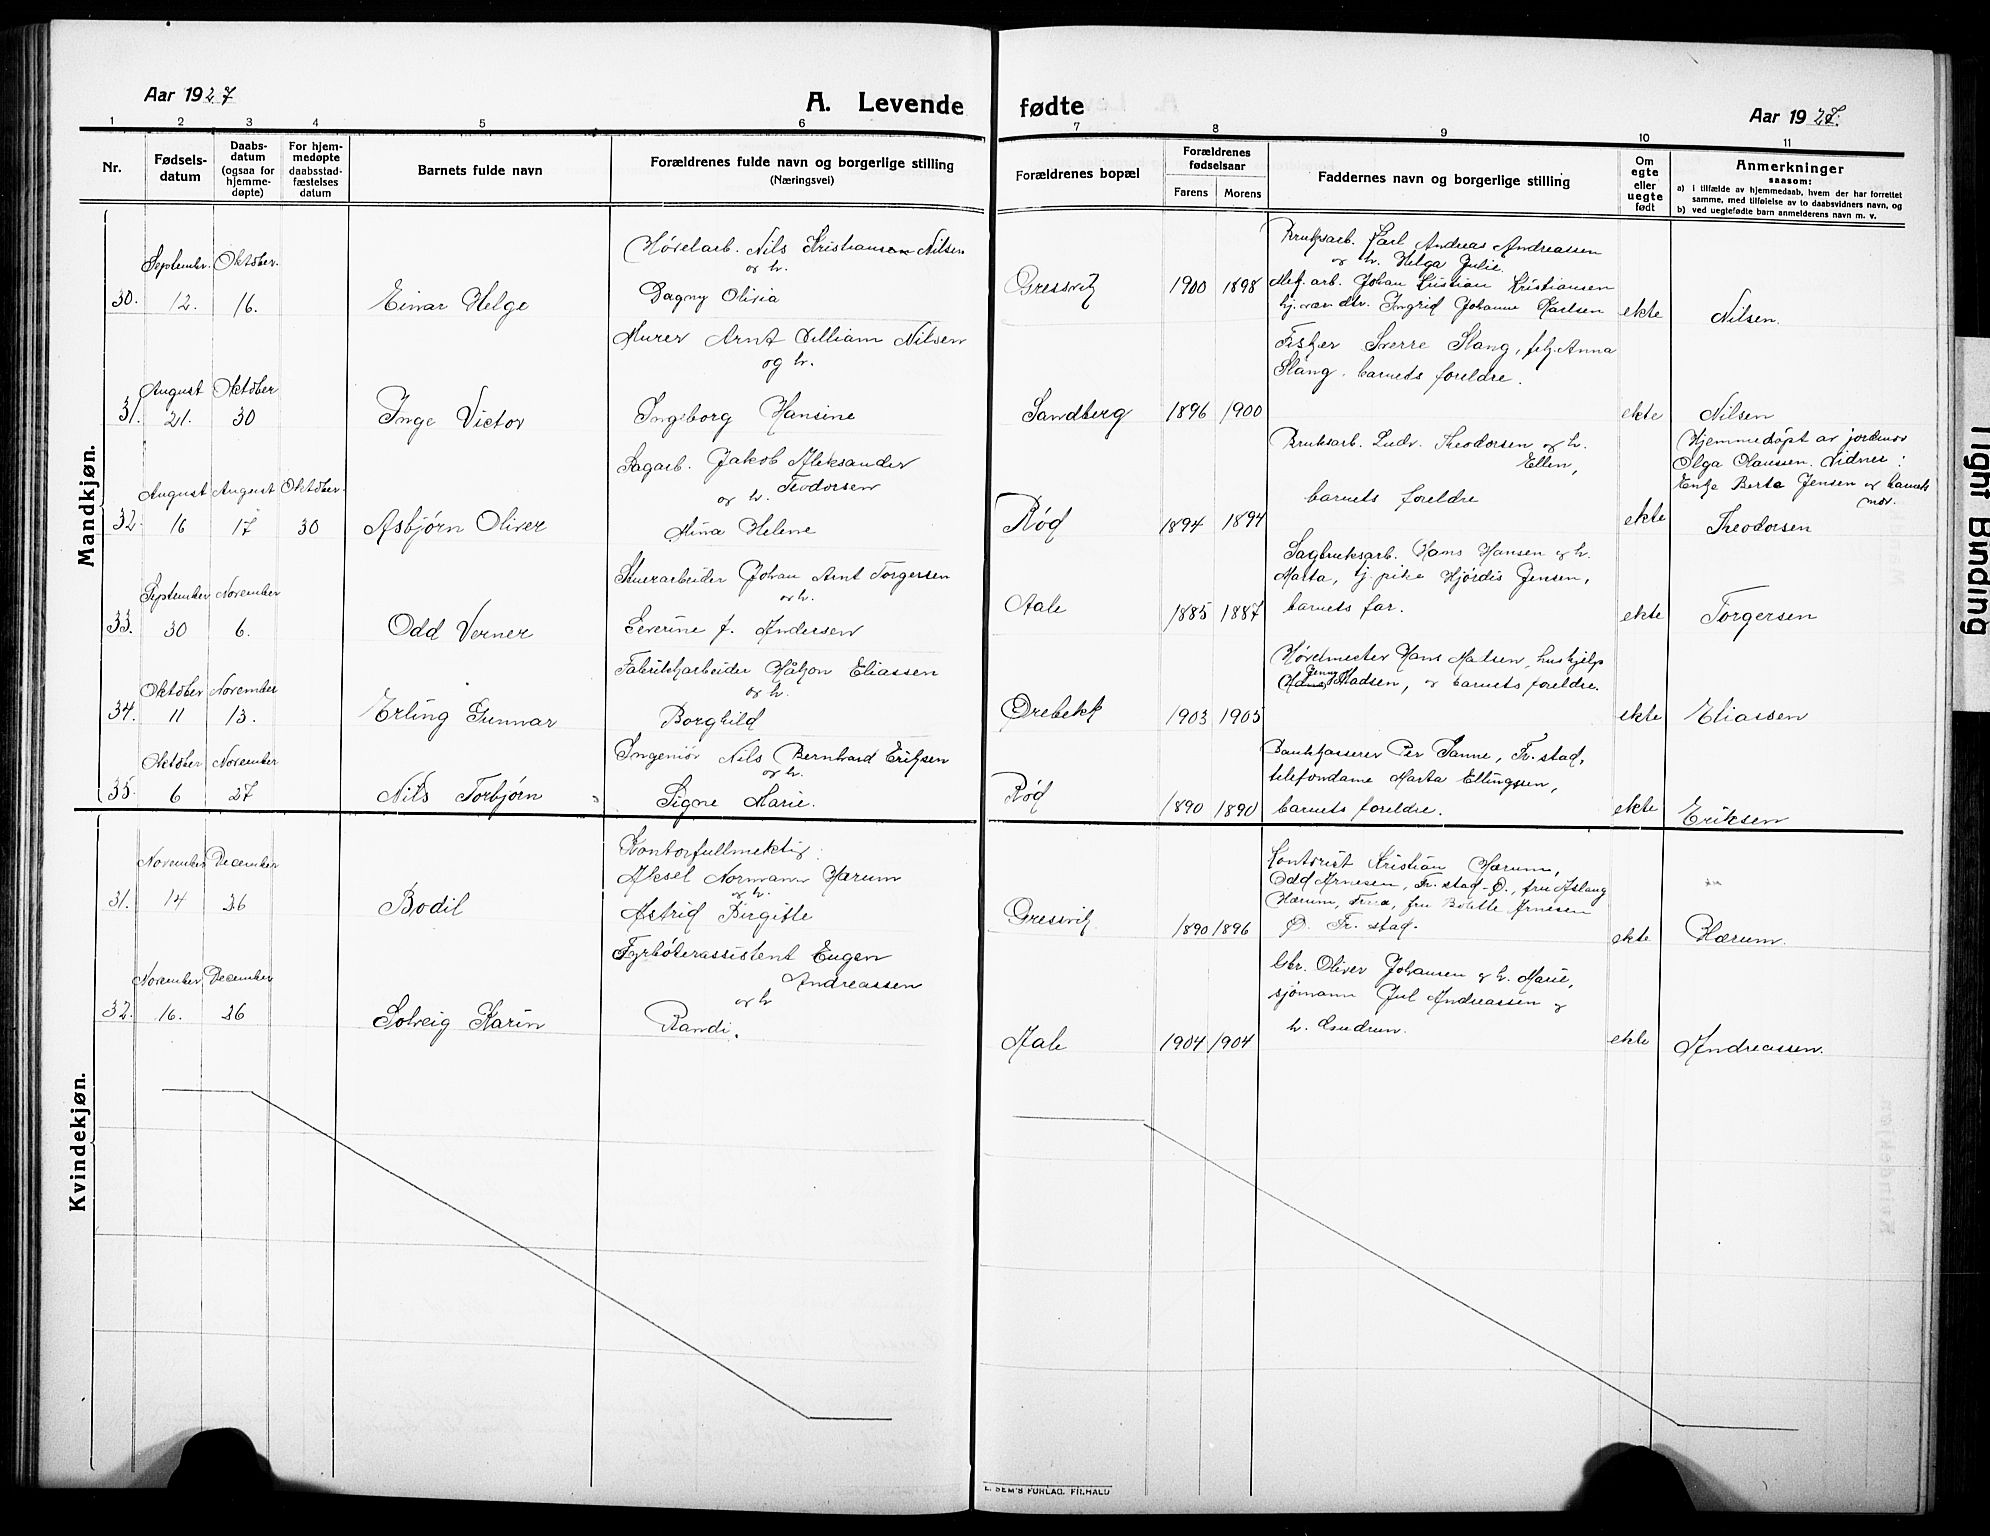 Aar 1927
A. Levende fødte
Aar 1927.
1 2 3 4 5 6 7 8 9 10 11
Nr.
Fødsels-
datum
Daabs-
datum
(ogsaa for
hjemme-
døpte)
For hjem-
medøpte
daabsstad-
fæstelses
datum
Barnets fulde navn
Forældrenes fulde navn og borgerlige stilling
(Næringsvei)
Forældrenes bopæl
Forældrenes
fødselsaar
Farens Morens
Faddernes navn og borgerlige stilling
Om
egte
eller
uegte
født
Anmerkninger
saasom:
a) i tilfælde av hjemmedaab, hvem der har forrettet
samme, med tilføielse av to daabsvidners navn, og
b) ved uegtefødte barn anmelderens navn m. v.
Mandkjøn.
30.
September.
12.
Oktober.
16.
Einar Helge
Høvelarb. Nils Kristiansen Nilsen
og h.
Dagny Olivia
Gressvik
1900 1898
Bruksarb. Karl Andreas Andreassen
og h. Helga Julie.
Mek. arb. Johan Kristian Kristiansen
hj.værende dtr. Ingrid Johanne Karlsen
ekte
Nilsen.
31.
August
21.
Oktober
30
Inge Victor
Murer Arnt Villiam Nilsen
og h.
Ingeborg Hansine
Sandberg
1896 1900
Fisker Sverre Slang, frk. Anna
Slang. barnets foreldre.
ekte
Nilsen
32.
August
16
August
17
Oktober.
30
Asbjørn Oliver
Sagarb. Jakob Aleksander
Teodorsen
og h.
Mina Helene
Rød
1894 1894
Bruksarb. Ludv. Theodorsen og h.
Ellen,
barnets foreldre
ekte
Hjemmedøpt av jordmor
Olga Olaussen. Vidner:
Enke Berta Jensen og barnets
mor.
Theodorsen
33.
September
30
November
6.
Odd Verner
Stuerarbeider Johan Arnt Torgersen
og h.
Severine f. Andersen
Aale
1885 1887
Sagbruksarb. Hans Hansen og h.
Marta, tj. pike Hjørdis Jensen,
barnets far.
ekte
Torgersen
34.
Oktober
11
November
13.
Erling Gunnar
Fabrikkarbeider Håkon Eliassen
og h.
Borghild
Ørebekk
1903 1905
Høvelmester Hans Madsen, hushjelp
Jenny Madsen, og barnets foreldre.
ekte
Eliassen
35.
Oktober
6
November
27
Nils Torbjørn
Ingeniør Nils Bernhard Eriksen
og h.
Signe Marie.
Rød
1890 1890
Bankkasserer Per Sanne, Fr. stad,
telefondame Marta Ellingsen,
barnets foreldre.
ekte
Eriksen
Kvindekjøn.
31.
November
14
December
26
Bodil
Kontorfullmektig:
Aksel Normann Hærum
og h.
Astrid Birgitte
Gressvik.
1890 1896
Kontorist Kristian Hærum,
Odd Arnesen, Fr. stad-Ø., fru Aslaug
Hærum, fru Bolette Arnesen
Ø. Fr. stad.
ekte
Hærum.
32.
November
16.
December
26
Solveig Karin
Fyrbøterassistent Eugen
Andreassen
og h
Randi.
Aale
1904 1904
Gbr. Oliver Johansen og h. Marie,
sjømann Jul Andreassen og
h. Gudrun.
ekte
Andreassen.
E. SEM'S FORLAG. FR.HALD
Tight Binding